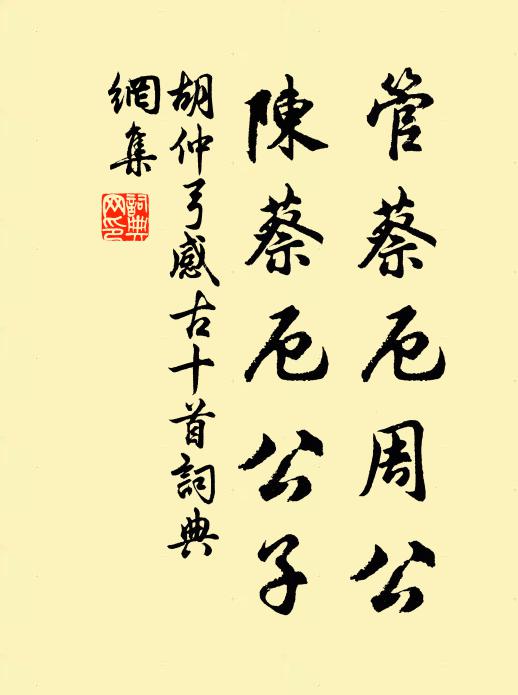 管蔡厄周公
陳蔡厄公子
胡仲弓感古十首詞典
網集
詞典网印